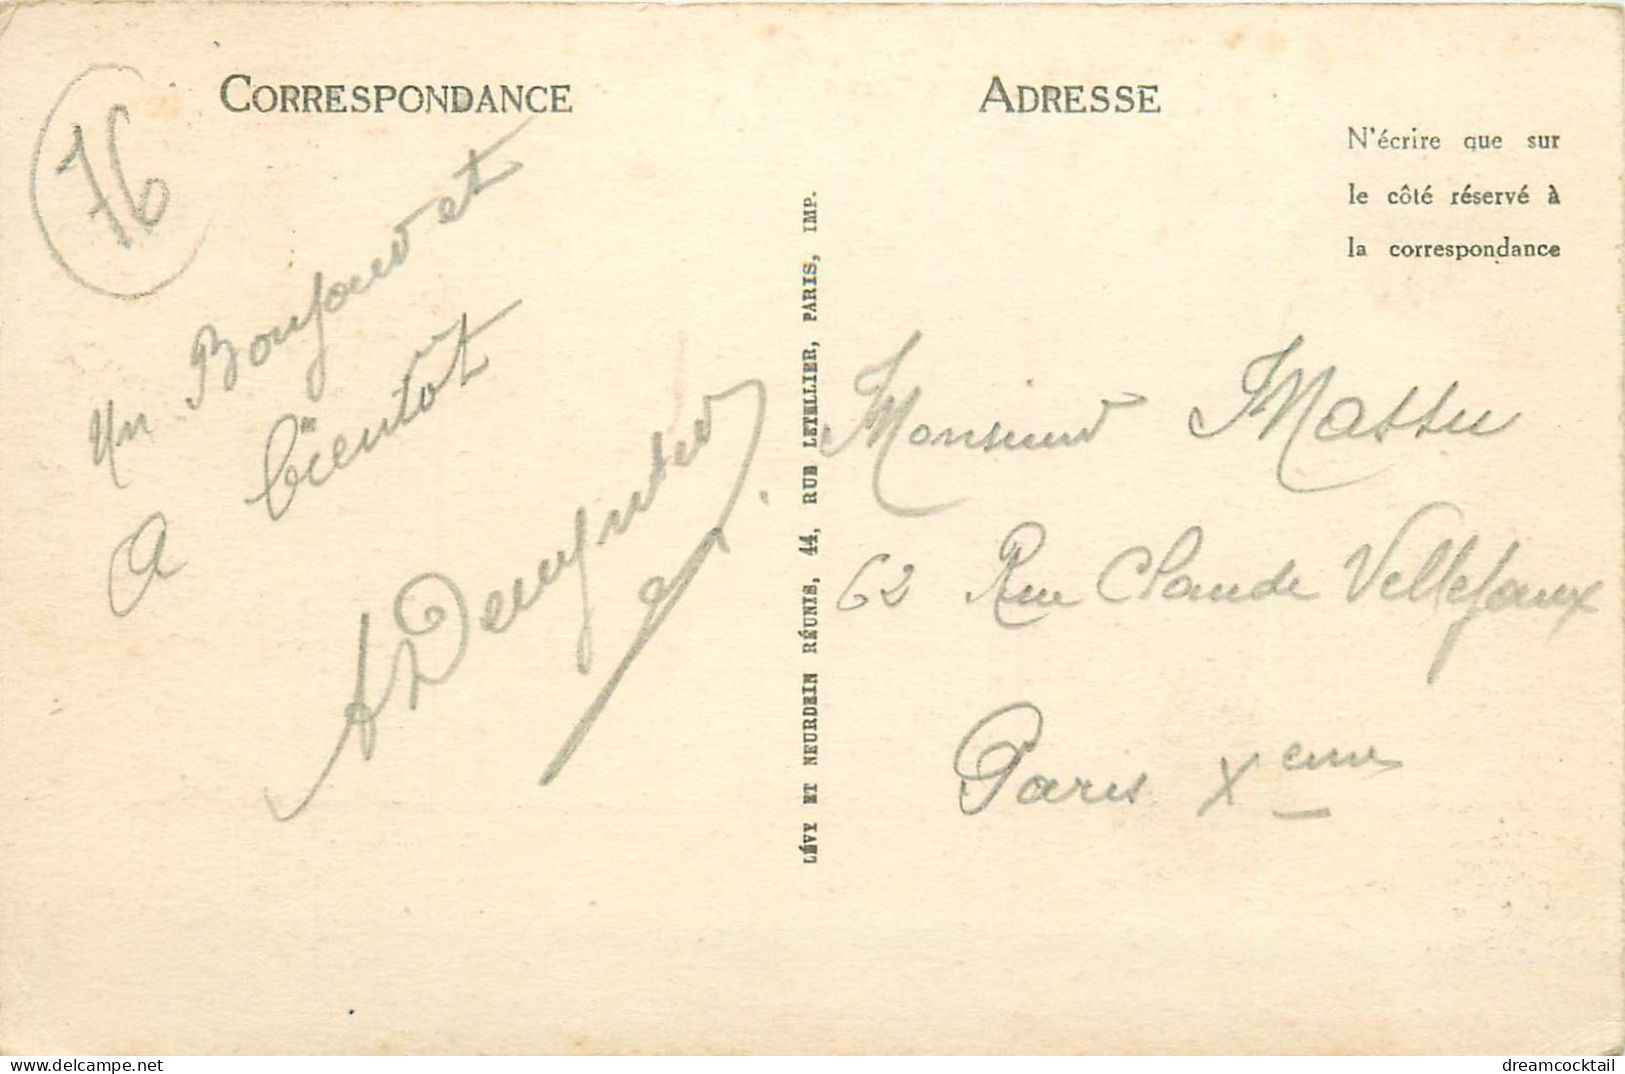 CORRESPONDANCE
76
Un Bonjour et
a bientôt
ADRESSE
N'écrire que sur
le côté réservé à
la correspondance
LÉVY ET NEURDEIN RÉUNIS, 44, RUE LETELLIER, PARIS, IMP.
Monsieur Massu
62 Rue Claude Vellefaux
Paris Xeme
delcampe.net
dreamcocktail